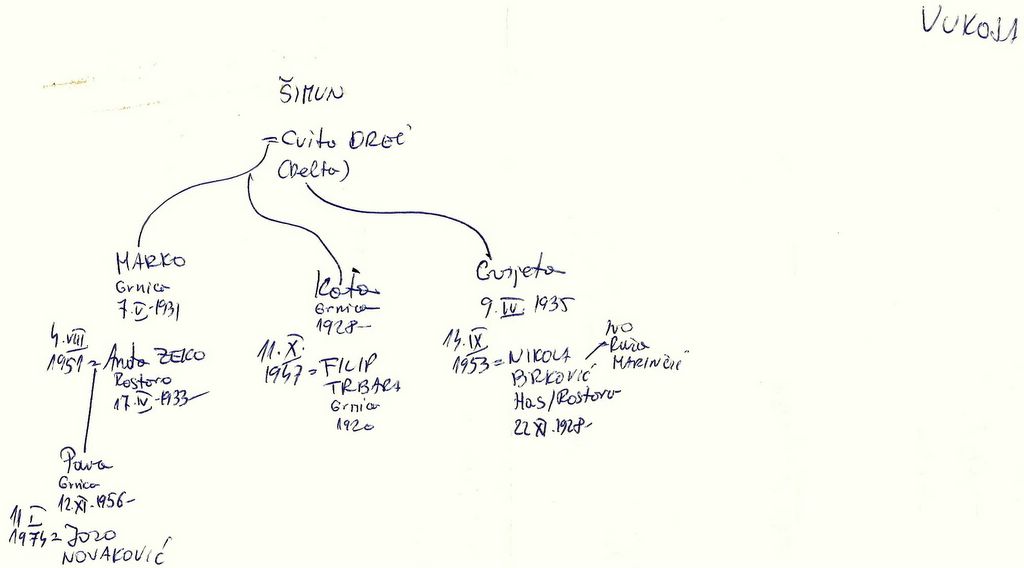 VUKOJA
ŠIMUN
= Cvita DREČ
(Delta)
MARKO
Grnica
7.V.1931
4.VIII
1951 = Anda ZEKO
Rostovo
17.IV.1933
Pava
Grnica
12.XI.1956
11.I
1974 = Jozo
NOVAKOVIĆ
Kata
Grnica
1928
11.X.
1947 = FILIP
TRBARA
Grnica
1920
Cvijeta
9.IV.1935
14.IX
1953 = NIKOLA
BRKOVIĆ
Has/Rostovo
22.XI.1928
IVO
Ruža
MARINČIĆ